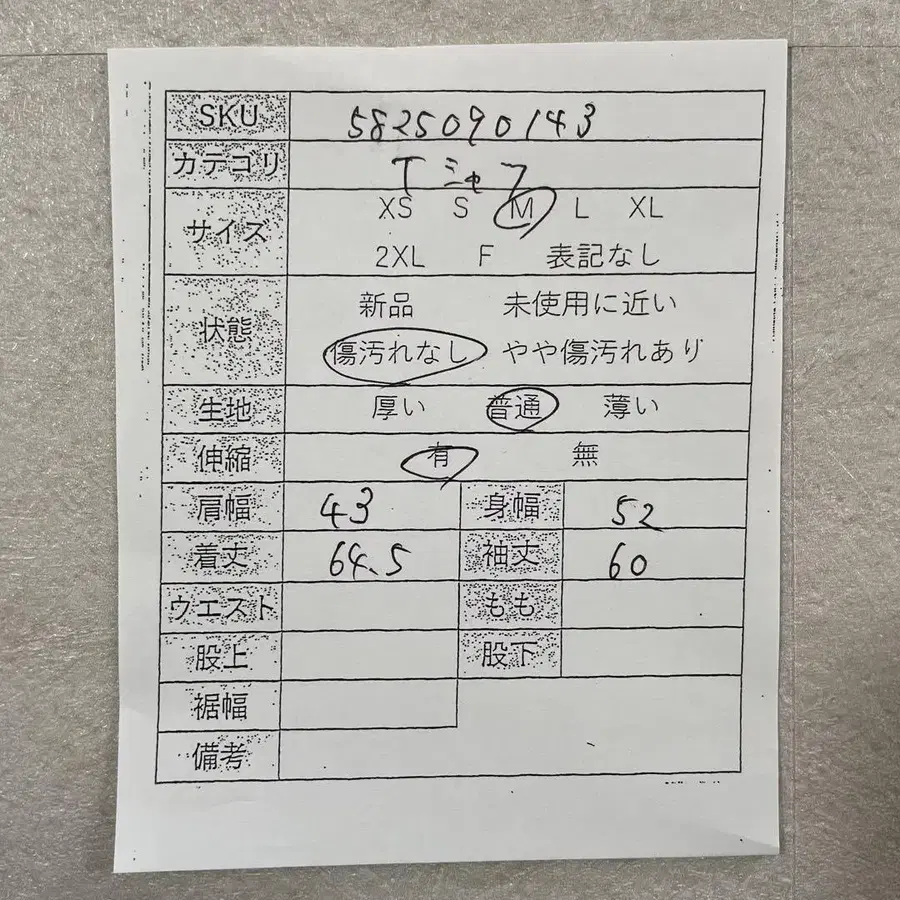 SKU 5825090143
カテゴリ Tシャツ
サイズ XS S M L XL
2XL F 表記なし
状態 新品 未使用に近い
傷汚れなし やや傷汚れあり
生地 厚い 普通 薄い
伸縮 有 無
肩幅 43 身幅 52
着丈 64.5 袖丈 60
ウエスト もも
股上 股下
裾幅
備考